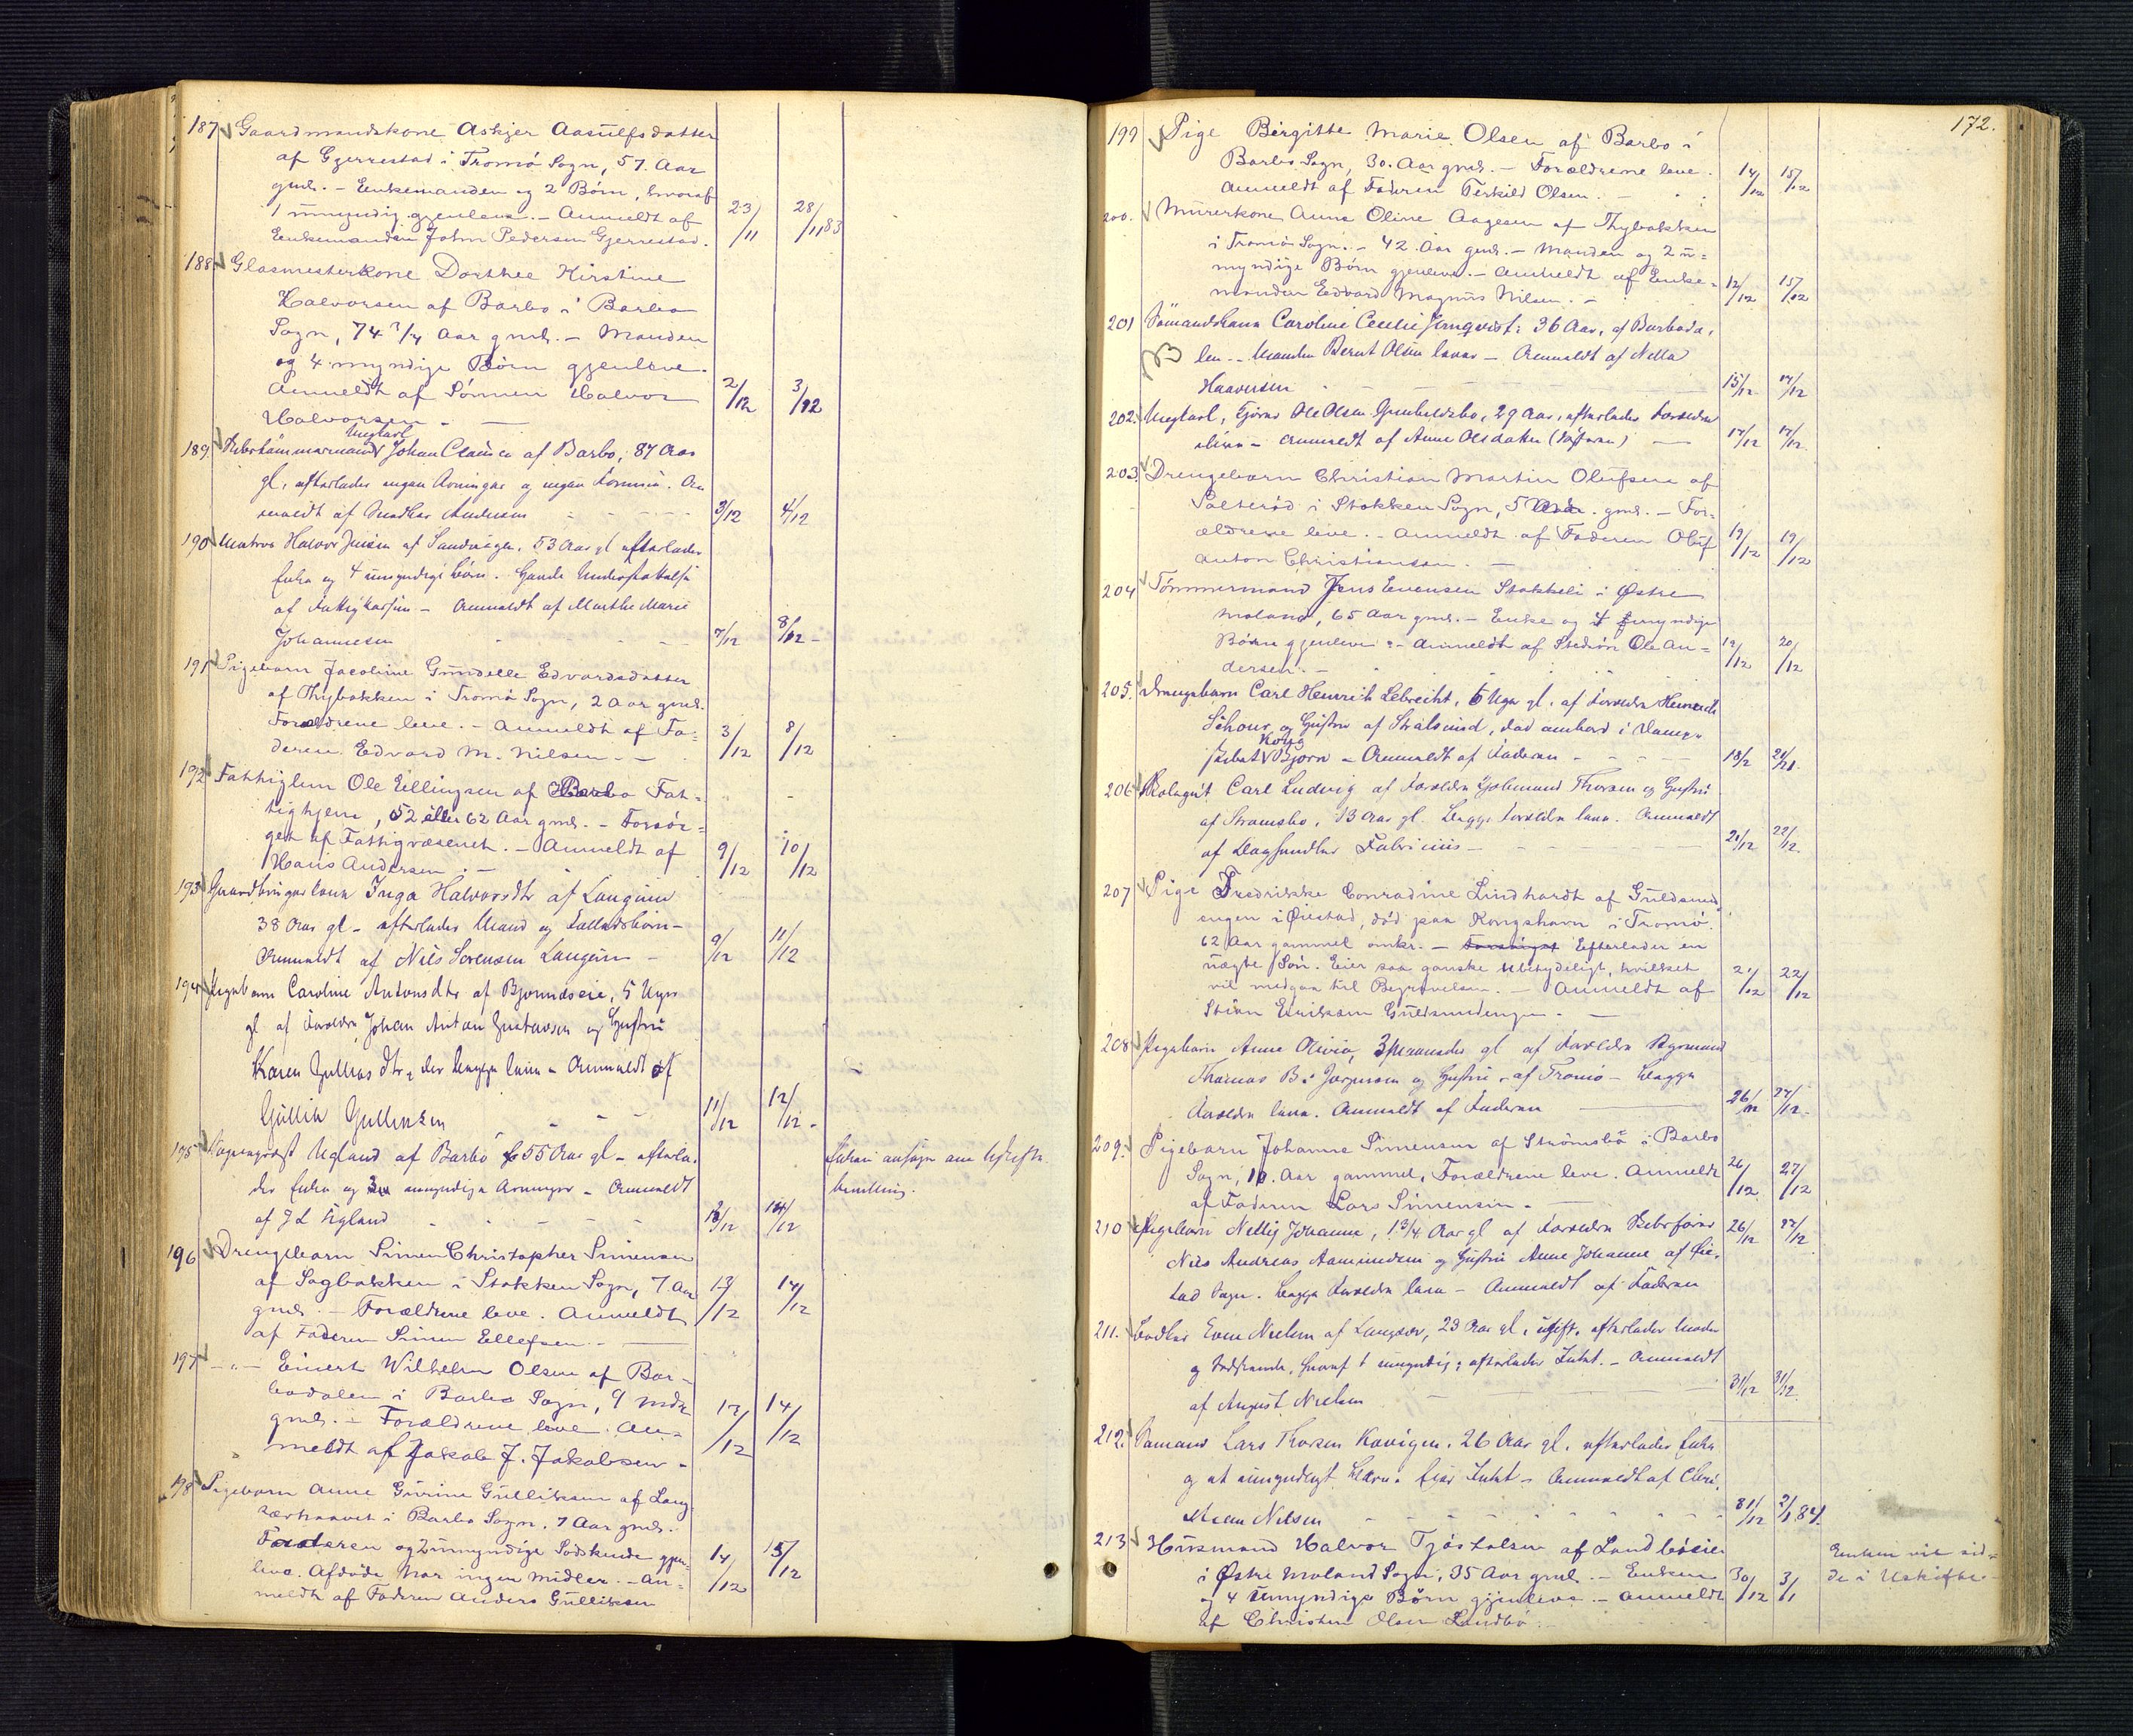 187 Gaardmandskone Askjer Aasulfsdatter
af Gjerrestad i Tromö Sogn, 57 Aar
gml. - Enkemanden og 2 Børn, hvoraf
1 umyndig gjenleve. - Anmeldt af
Enkemanden John Pedersen Gjerrestad. 23/11 28/11 83
188 Glasmesterkone Dorthee Kirstine
Halvorsen af Barbo i Barbo
Sogn, 74 3/4 Aar gml. - Manden
og 4 myndige Børn gjenleve.
Anmeldt af Sønnen Halvor 2/12 3/12
Halvorsen. -
Ungkarl
189. Johan Clausen af Barbo, 87 Aar
gl, efterlader ingen Arvinger og ingen Formue. An
meldt af Snedker Andersen 3/12 4/12
190 Matros Halvor Jensen af Sandvigen, 53 Aar gl efterlader
Enke og 4 umyndige børn. Havde Understøttelse
af Fattigkassen - Anmeldt af Marthe Marie
Johannesen 7/12 8/12 -
191 Pigebarn Jacoline Gundelle Edvardsdatter
af Thybakken i Tromö Sogn, 2 Aar gml.
Forældrene leve. - Anmeldt af Fa- 3/12 8/12
deren Edvard M. Nilsen. -
192 Fattiglem Ole Ellingsen af Barbo Fat-
tighjem, 52 eller 62 Aar gml. - Forsör-
get af Fattigvæsenet. - Anmeldt af 9/12 10/12
Hans Andersen. -
193 Gaardbrugerkone Inga Halvorsdtr af Langum
38 Aar gl - efterlader Mand og Fællesbörn -
Anmeldt af Nils Sorensen Langum - 9/12 11/12
194 Pigebarn Caroline Antonsdtr af Bjonnæseie, 5 Uger
gl af Forældre Johan Anton Gustavsen og Hustru
Karen Gulliksdtr, der begge leve - Anmeldt af
Gullik Gulliksen 11/12 12/12 -
195 Ugland af Barbo 55 Aar gl - efterla-
der Enke og 3 umyndige Arvinger - Anmeldt
af J L Ugland 13/12 14/12
Enken ansøgn om Uskifte-
bevilling.
196 Drengebarn Simen Christopher Simensen
af Sagbakken i Stokken Sogn, 7 Aar 13/12 14/12
gml. - Forældrene leve. Anmeldt
af Faderen Simen Ellefsen. -
197 - " - Einert Wilhelm Olsen af Bar-
bodalen i Barbo Sogn, 9 Mdr
gml. - Forældrene leve. An- 13/12 14/12
meldt af Jakob J. Jakobsen -
198 Pigebarn Anne Gurine Gulliksen af Lang-
særhavet i Barbo Sogn, 7 Aar gml.
Faderen og 2 umyndige Sødskende gjen- 14/12 15/12
leve. Afdøde har ingen Midler. - An-
meldt af Faderen Anders Gulliksen
172.
199 Pige Birgitte Marie Olsen af Barbo i
Barbo Sogn, 30 Aar gml. - Forældrene leve. 14/12 15/12
Anmeldt af Faderen Terkild Olsen. -
200. Murerkone Anna Oline Aagesen af Thybakken
i Tromö Sogn. - 42 Aar gml. - Manden og 2 u-
myndige Børn gjenleve. - Anmeldt af Enke- 12/12 15/12
manden Edvard Magnus Nilsen. -
201 Sømandskone Caroline Cecilie Jernqvist: 36 Aar, af Barboda-
len. - Manden Bernt Olsen lever - Anmeldt af Nella
Haaversen 15/12 17/12
202. Ungkarl, Ole Olsen Gumbeldsbo, 29 Aar, efterlader Forældre
i live - Anmeldt af Anne Olsdatter (Søsteren) - 17/12 17/12
203. Drengebarn Christian Martin Olufsen af
Salterød i Stokken Sogn, 5 gml. - For-
ældrene leve. - Anmeldt af Faderen Oluf 19/12 19/12
Anton Christiansen. -
204 Tömmermand Jens Evensen Stokkeli i Østre
Moland, 65 Aar gml. - Enke og 4 myndige
Børn gjenleve. - Anmeldt af Stedsön Ole An- 19/12 20/12
dersen. -
205. Drengebarn Carl Henrich Lebrecht, 6 Uger gl. af Forældre Heinrich
Schour og Hustru af Stralsund, død ombord i Damp-
Kong
skibet Bjorn - Anmeldt af Faderen 18/12 21/12.
206 Skolegut Carl Ludvig af Forældre Thorsen og Hustru
af Stromsbo, 13 Aar gl. Begge Forældre leve. Anmeldt
af Fabricius - 21/12 22/12.
207 Pige Fredrikke Conradine Lindhardt af Guldsmed
engen i Øiestad, död paa Kongshavn i Tromö.
62 Aar gammel omkr. - Efterlader en
uægte Sön. Eier saa ganske ubetydeligt, hvilket 21/12 22/12
vil medgaa til Begravelsen. - Anmeldt af
Stian Eriksen Guldsmedengen. -
208 Pigebarn Anna Olivia, 3 Maaneder gl af Forældre
Thomas B. Jorgensen og Hustru af Tromö - begge
Forældre leve. Anmeldt af Faderen 26/12 27/12 -
209. Pigebarn Johanne Simensen af Strömsbö i Barbo
Sogn, 10 Aar gammel, Forældrene leve. Anmeldt 26/12 27/12
af Faderen Lars Simensen. -
210 Pigebarn Nellij Johanne, 1 3/4 Aar gl af Forældre Skibsförer 26/12 27/12
Nils Andreas Aamundsen og Hustru Anne Johanne af Øie-
stad Sogn. begge Forældre leve - Anmeldt af Faderen
211. Bødker Even Nielsen af Langsæ, 23 Aar gl, ugift, efterlader Moder
og Sødskende, hvoraf 1 umyndig; efterlader Intet. - Anmeldt
af August Nielsen 31/12 31/12
212. Sømand Lars Thorsen Kovigen. 26 Aar gl, efterlader Enke
og et umyndigt barn. Eier Intet - Anmeldt af
Nilsen 31/12 2/1 84.
213 Husmand Halvor Tjöstolsen af Landböeie
i Østre Moland Sogn, 35 Aar gml. - Enken 30/12 3/1
og 4 umyndige Børn gjenleve. - Anmeldt
af Christen Olsen Landbö. -
Enken vil sid-
de i Uskifte -